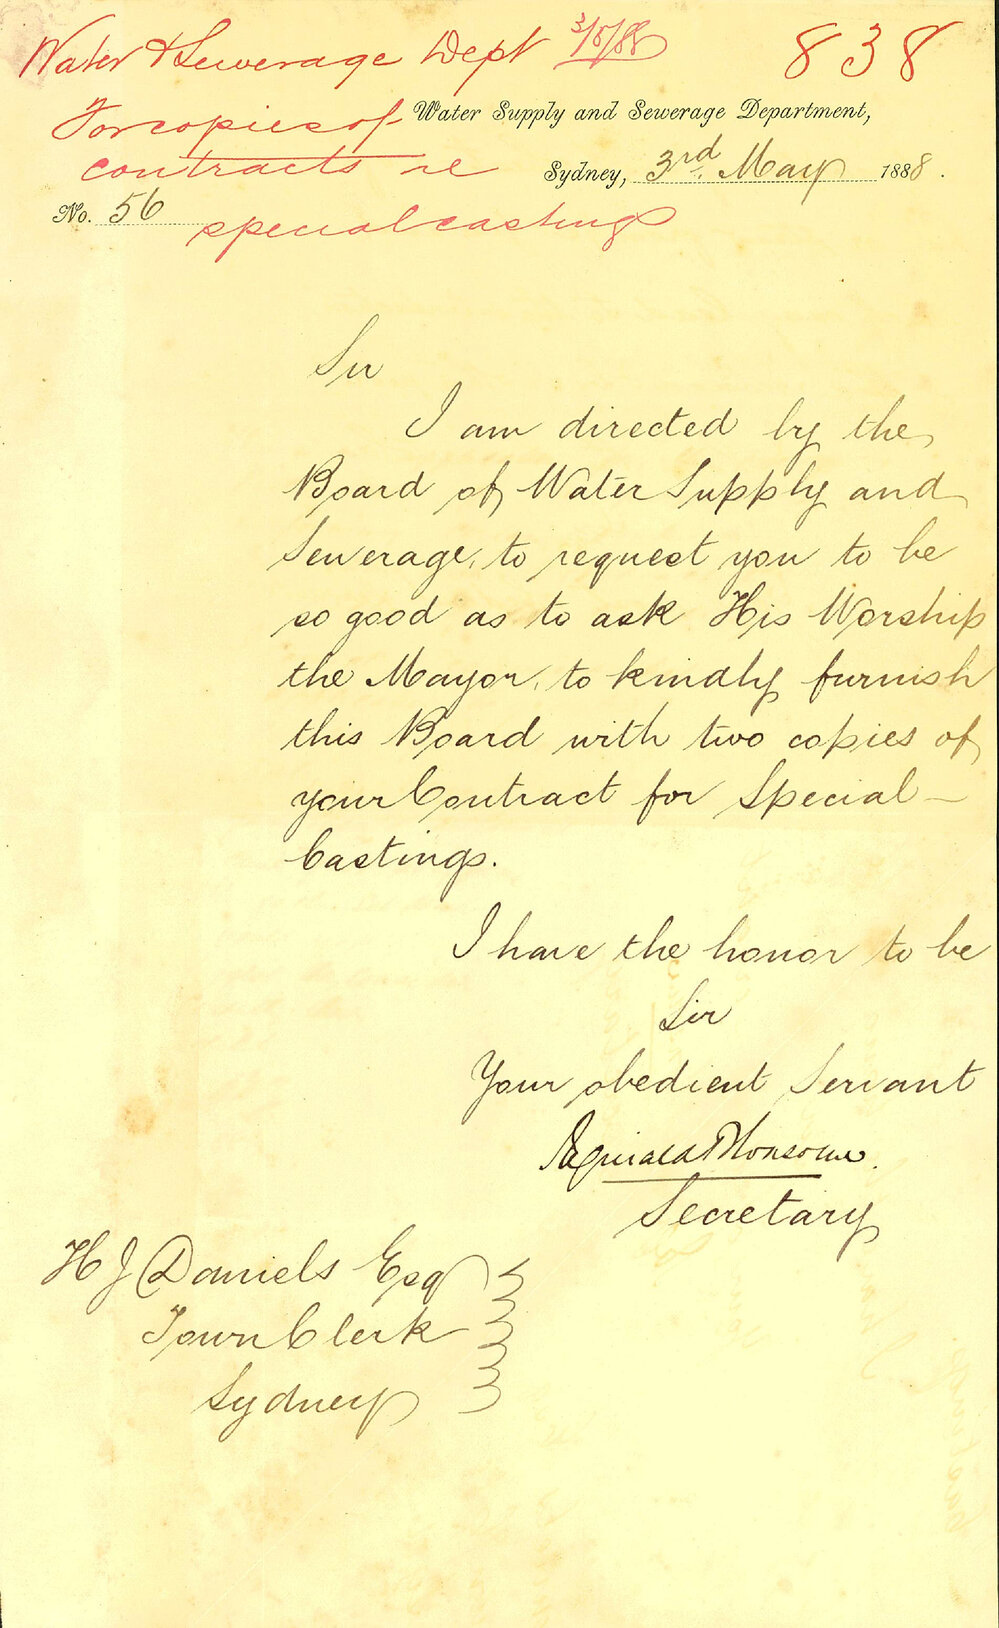 Water & Sewerage Dept 3/5/88 838
For copies of
Water Supply and Sewerage Department,
contracts re
Sydney, 3rd May 1888.
No. 56
special castings
Sir
I am directed by the
Board of Water Supply and
Sewerage, to request you to be
so good as to ask His Worship
the Mayor, to kindly furnish
this Board with two copies of
your Contract for Special
Castings.
I have the honor to be
Sir
Your obedient Servant
Reginald
Secretary
H J Daniels Esq
Town Clerk
Sydney